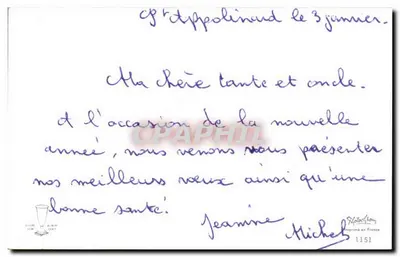 St Appolinard le 3 janvier.
Ma chère tante et oncle.
A l'occasion de la nouvelle
année, nous venons vous présenter
nos meilleurs vœux ainsi qu'une
bonne santé!
Jeanine
Michel
CPAPHIL